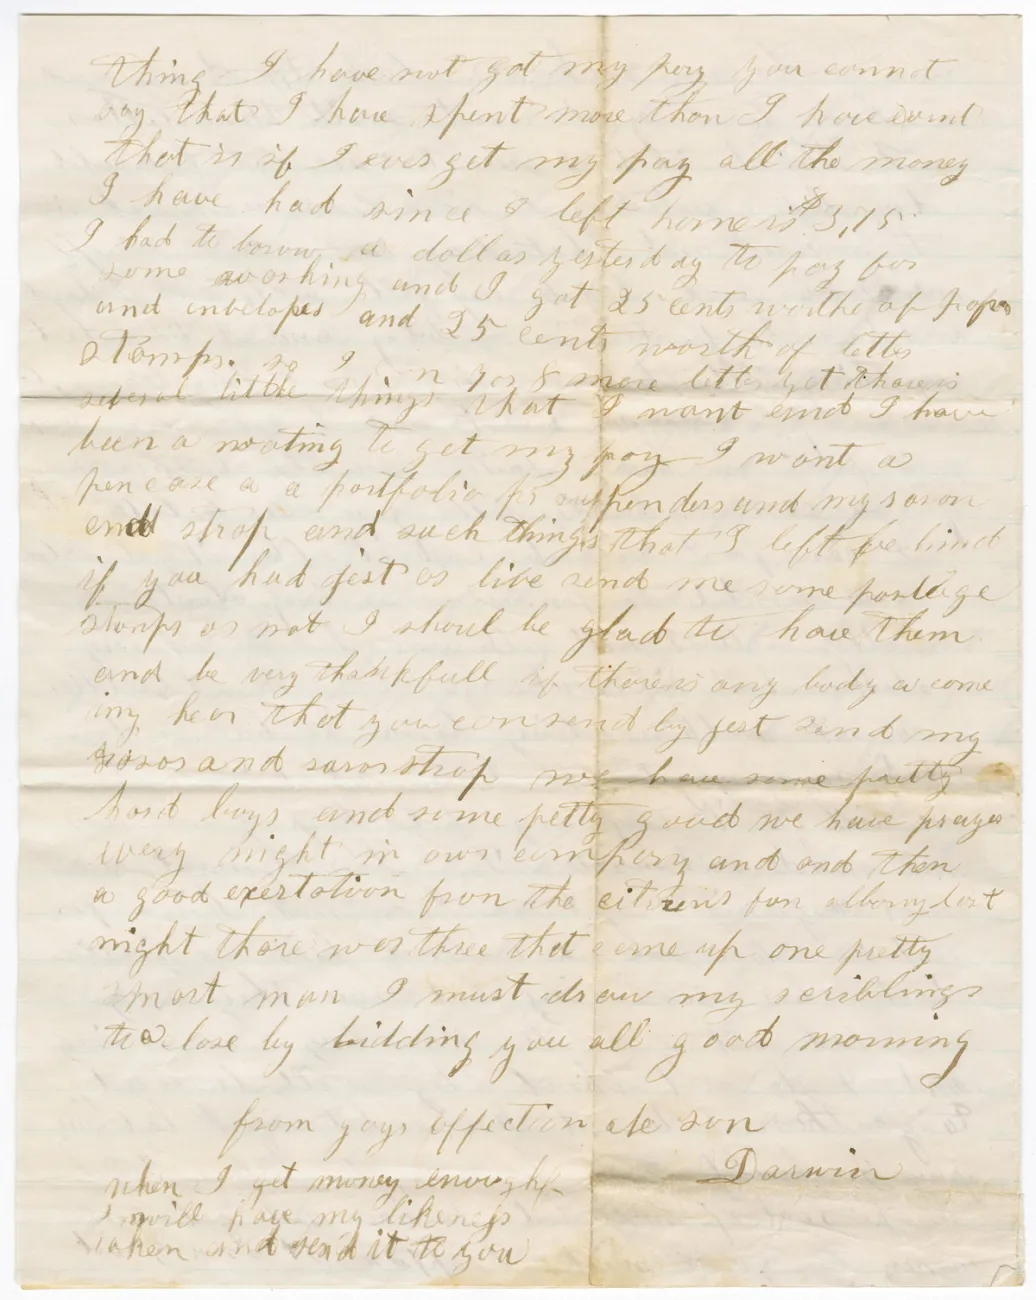 thing I have not got my pay you connot
say that I have spent more than I have
that is if I ever get my pay all the money
I have had since I left home is $3,75
I had to borow a dollar yesterday to pay for
some working and I got 25 cents worthe of paper
and invelopes and 25 cents worth of letter
stamps. so I for 8 more letter yet thare is
several little things that I want and I have
been a wating to get my pay I want a
pencase a a portfolio pr suspenders and my
and strop and such things that I left be hind
if you had jest as live send me some postage
stamps as not I shoul be glad to have them
and be very thankfull if thare is any body a come
ing hear that you can send by jest send my
and strop we have some pretty
hard boys and some petty good we have prayer
every night in our company and and then
a good exertation from the citizens fom albany last
night thare was three that came up one pretty
smart man I must draw my scriblings
to a close by bidding you all good morning
from your affection ate son
Darwin
when I get money enough
I will have my likeness
taken and send it to you